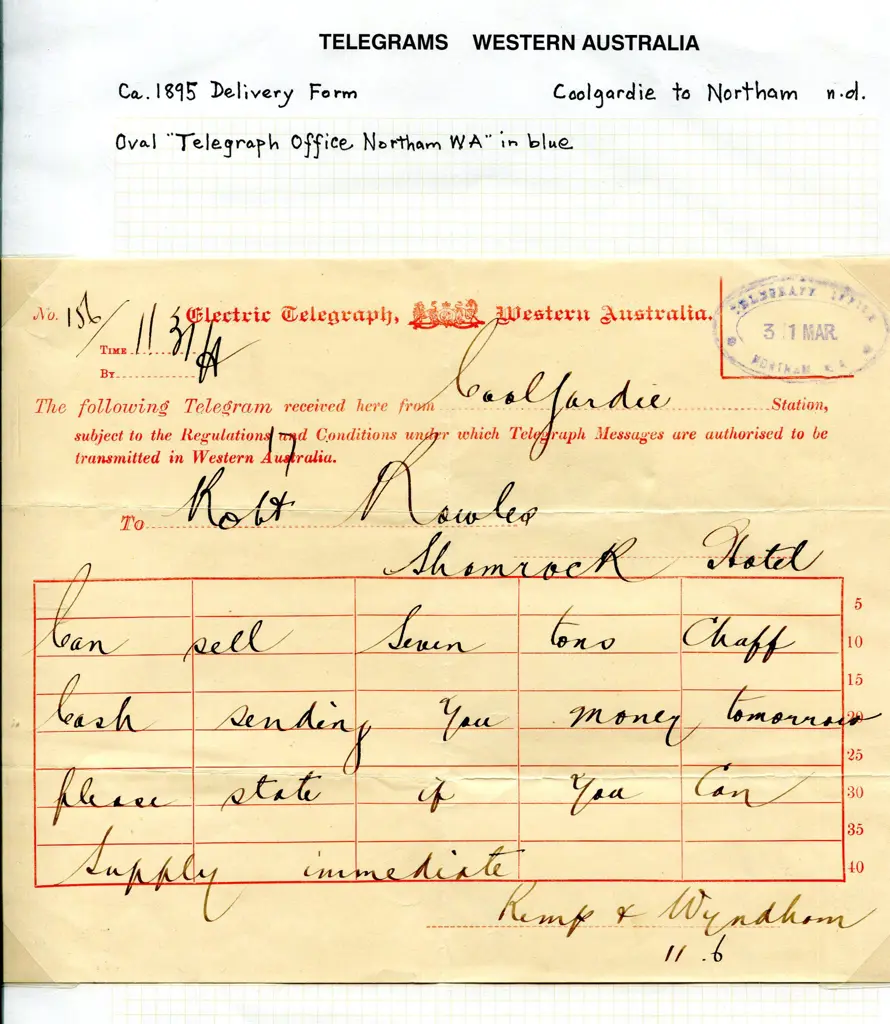 TELEGRAMS WESTERN AUSTRALIA
Ca. 1895 Delivery Form Coolgardie to Northam n.d.
Oval "Telegraph Office Northam WA" in blue
No. 156 Electric Telegraph, Western Australia.
TELEGRAPH OFFICE
31 MAR.
NORTHAM W.A.
TIME 11 31
BY
The following Telegram received here from Coolgardie Station,
subject to the Regulations and Conditions under which Telegraph Messages are authorised to be
transmitted in Western Australia.
17
To Robt Rowles
Shamrock Hotel
5
Can sell Seven tons Chaff 10
15
Cash sending you money tomorrow 20
25
please state if you Can 30
35
Supply immediate 40
Kemp & Wyndham
11.6